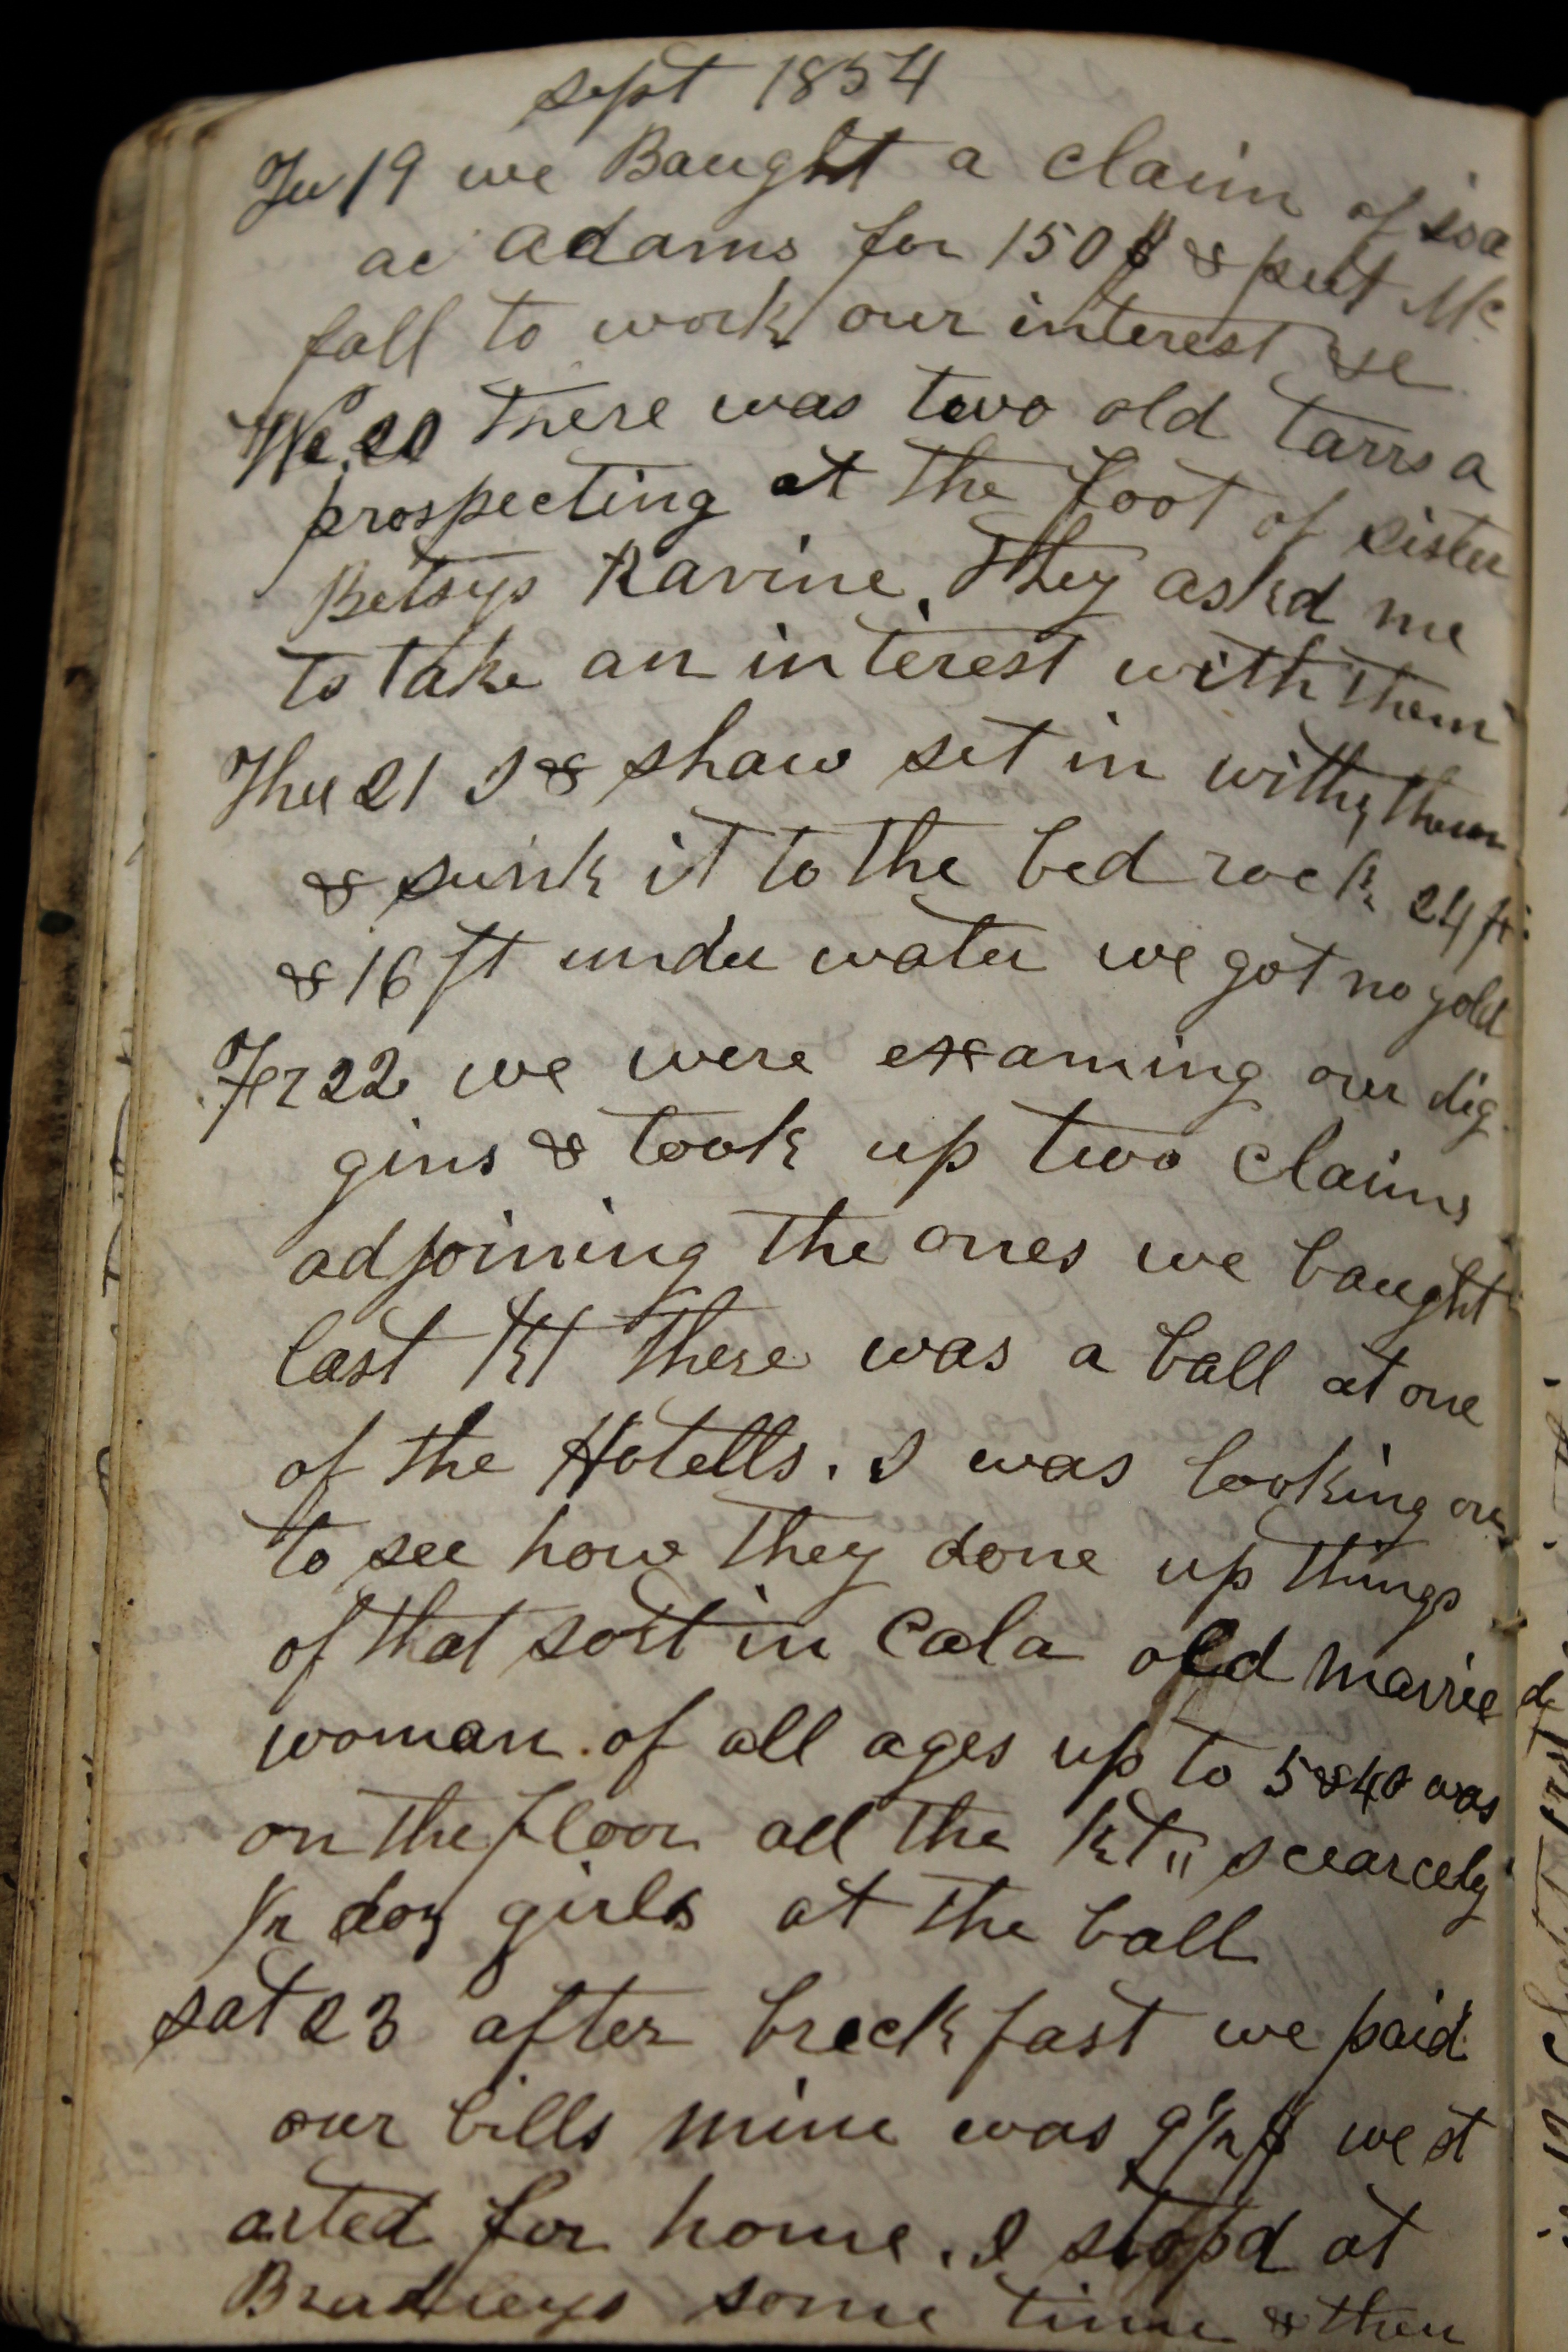 sept 1854
Tu 19 we Baught a claim of isa
ac adams for 150 $ & put Mc
fall to work our interest
We 20 there was two old tarrs a
prospecting at the foot of sister
Betsys Ravine. They askd me
to take an interest with them
Thu 21 I & shaw set in with them
& sunk it to the bed rock 24 ft
& 16 ft under water we got no gold
Fr 22 we were examing our dig
gins & took up two claims
adjoining the ones we baught
last there was a ball at one
of the Hotells. I was looking on
to see how they done up things
of that sort in Cala old married
woman of all ages up to was
on the floor all the scearcely
doz girls at the ball
sat 23 after breckfast we paid
our bills mine was 9 1/2 $ we st
arted for home. I stopd at
Bradleys some time & then